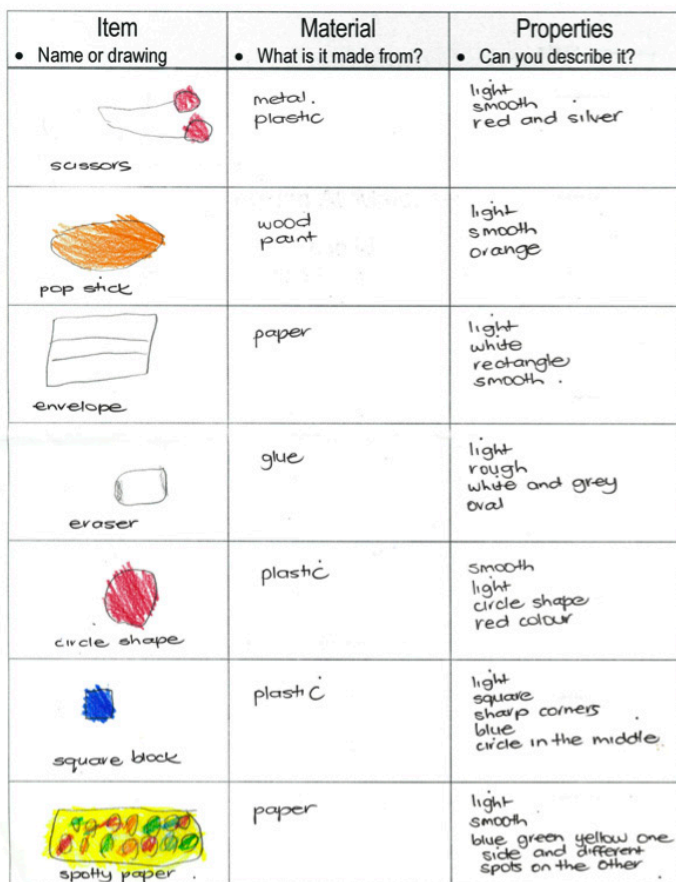 Item
Material
Properties
• Name or drawing
• What is it made from?
• Can you describe it?
scissors
metal.
plastic
light
smooth
red and silver
pop stick
wood
paint
light
smooth
orange
envelope
paper
light
white
rectangle
smooth.
eraser
glue
light
rough
white and grey
oval
circle shape
plastic
smooth
light
circle shape
red colour
square block
plastic
light
square
sharp corners
blue
circle in the middle
spotty paper
paper
light
smooth
blue green yellow one
side and different
spots on the other